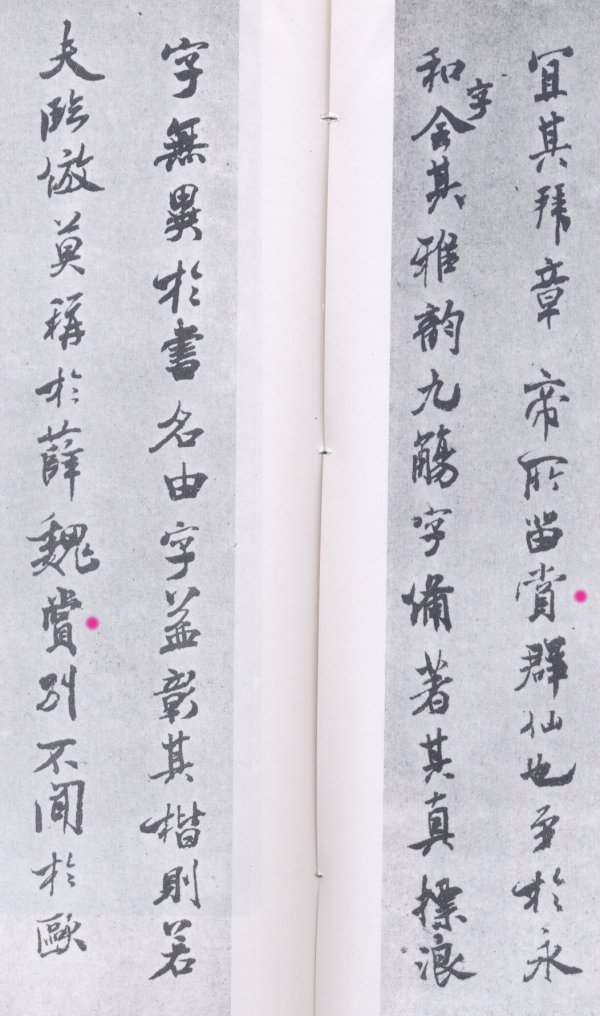 冝其拜章帝所留賞群仙也至於永
和字合其雅韵九觴字備著其真摽浪
字無異於書名由字益彰其楷則若
夫臨倣莫稱於薛魏賞別不聞於歐